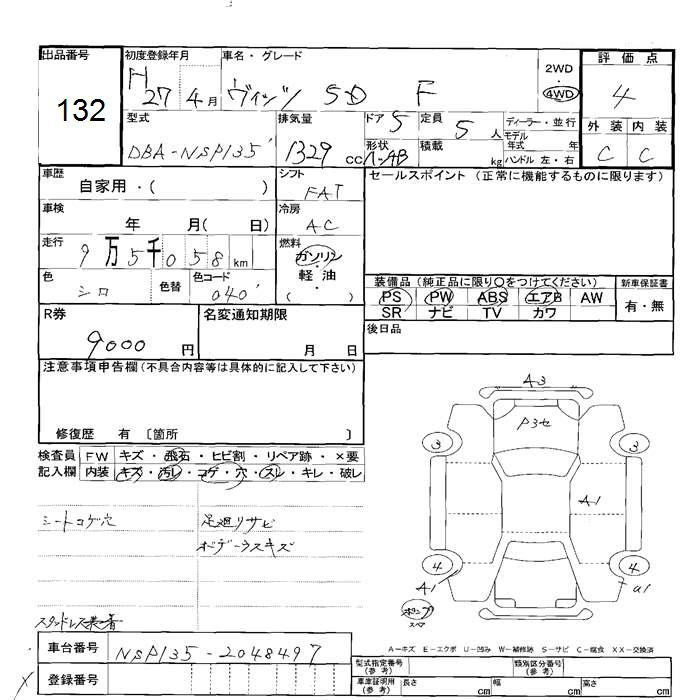 出品番号 132
初度登録年月 H 27 4月
車名・グレード ヴィッツ SD F
2WD 4WD
評価点 4
外装 内装
C C
型式 DBA-NSP135
排気量 1329 cc
ドア 5 形状 ハ-AB
定員 5人 積載 kg
ディーラー・並行
モデル年式 年
ハンドル 左・右
車歴 自家用・( )
シフト FAT
セールスポイント (正常に機能するものに限ります)
車検 年 月( 日)
冷房 AC
走行 9万5千058km
燃料 ガソリン・軽油 ( )
色 シロ 色替 色コード 040
装備品 (純正品に限り○をつけてください)
PS PW ABS エアB AW
SR ナビ TV カワ
新車保証書
有・無
R券 9000円
名変通知期限 月 日
後日品
注意事項申告欄 (不具合内容等は具体的に記入して下さい)
修復歴 有 〔箇所 〕
検査員 FW キズ・飛石・ヒビ割・リペア跡・×要
記入欄 内装 キズ・汚レ・コゲ・穴・スレ・キレ・破レ
シートコゲ穴 足廻リサビ
ボデーウスキズ
スタッドレス装着
A3
P3セ
3 3
A1
4 4
A1 U1
ポンプ
スペア
A-キズ E-エクボ U-凹み W-補修跡 S-サビ C-腐食 XX-交換済
車台番号 NSP135-2048497
X 登録番号
型式指定番号 (参考) 類別区分番号 (参考)
車庫証明用 (参考) 長さ cm 幅 cm 高さ cm